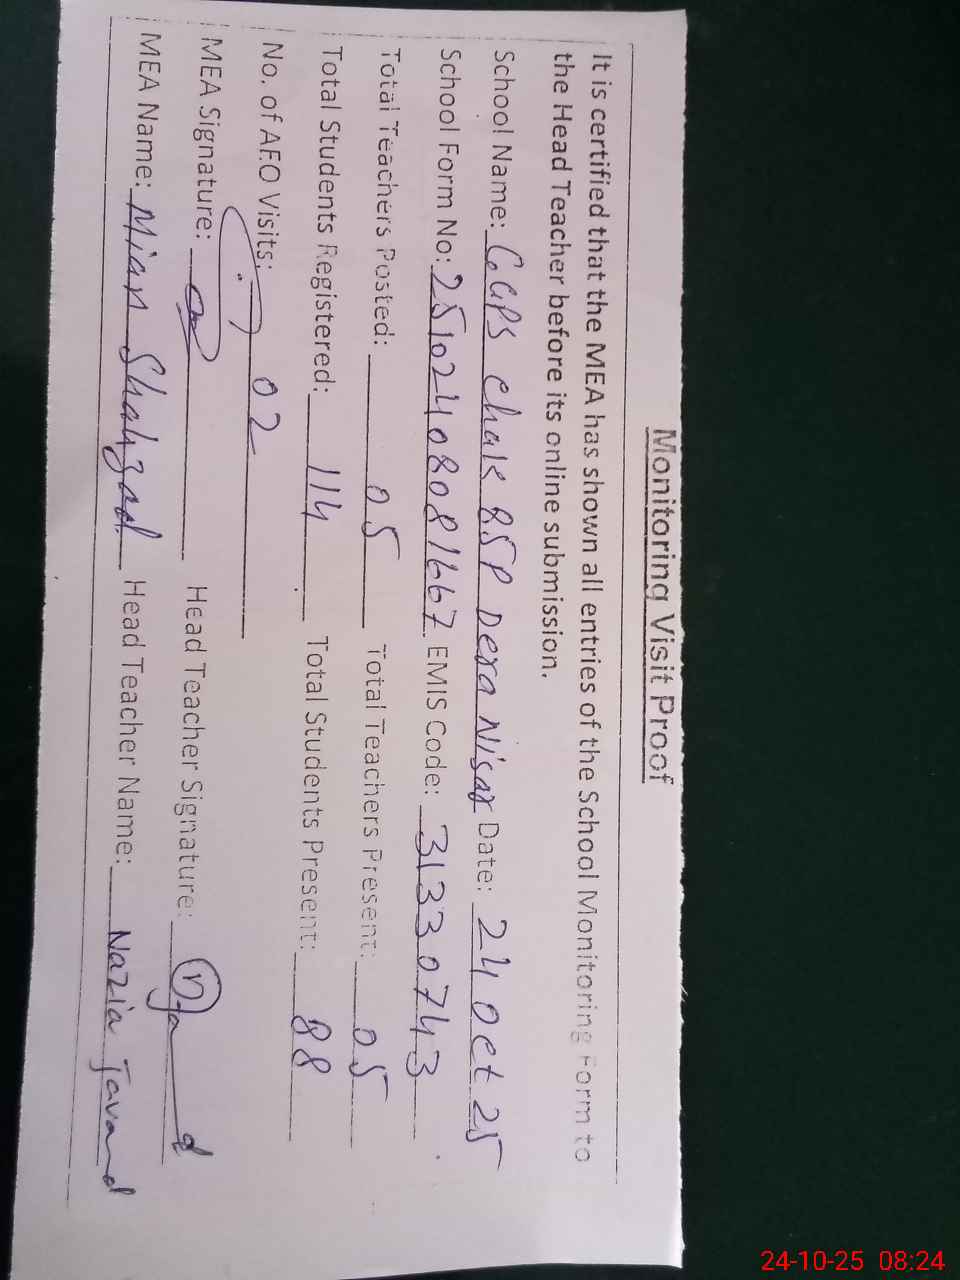 Monitoring Visit Proof
It is certified that the MEA has shown all entries of the School Monitoring Form to
the Head Teacher before its online submission.
School Name: GGPS chak 85P Dera Nisar Date: 24 Oct 25
School Form No: 25102408081667 EMIS Code: 31330743
Total Teachers Posted: 05 Total Teachers Present: 05
Total Students Registered: 114 Total Students Present: 88
No. of AEO Visits: 02
MEA Signature: Head Teacher Signature:
MEA Name: Mian Shahzad Head Teacher Name: Nazia Javad
24-10-25 08:24